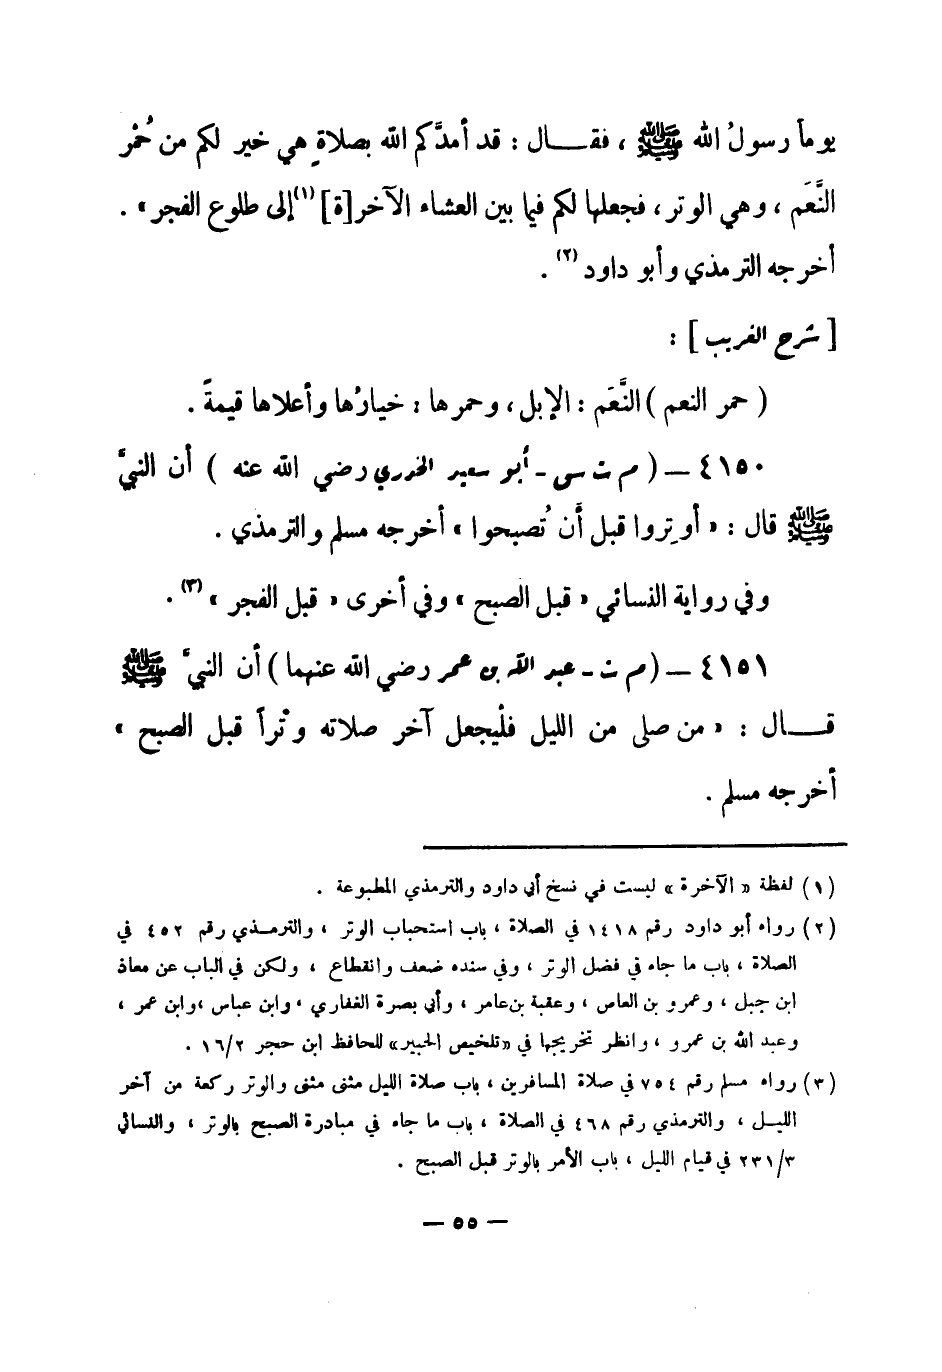 يوماً رسولُ الله ﷺ ، فقـــال : قد أمدَّكم الله بصلاةٍ هي خير لكم من حُمْر
النَّعَم ، وهي الوتر ، فجعلها لكم فيما بين العشاء الآخر[ة] (١) إلى طلوع الفجر » .
أخرجه الترمذي وأبو داود (٢) .
[ شرح الغريب ] :
( حمر النعم ) النَّعَم : الإبل ، وحمرها : خيارُها وأعلاها قيمةً .
٤١٥٠ — ( م ت سى - أبو سعيد الخدري رضي الله عنه ) أن النبيَّ
ﷺ قال : « أوتِروا قبل أن تُصبحوا » أخرجه مسلم والترمذي .
وفي رواية النسائي « قبل الصبح » وفي أخرى « قبل الفجر » (٣) .
٤١٥١ — ( م ت - عبد الله بن عمر رضي الله عنهما ) أن النبيَّ ﷺ
قـــال : « من صلى من الليل فلْيجعل آخر صلاته وتْراً قبل الصبح »
أخرجه مسلم .
(١) لفظة « الآخرة » ليست في نسخ أبي داود والترمذي المطبوعة .
(٢) رواه أبو داود رقم ١٤١٨ في الصلاة ، باب استحباب الوتر ، والترمـذي رقم ٤٥٢ في
الصلاة ، باب ما جاء في فضل الوتر ، وفي سنده ضعف وانقطاع ، ولكن في الباب عن معاذ
ابن جبل ، وعمرو بن العاص ، وعقبة بن عامر ، وأبي بصرة الغفاري ، وابن عباس ، وابن عمر ،
وعبد الله بن عمرو ، وانظر تخريجها في «تلخيص الحبير» للحافظ ابن حجر ١٦/٢ .
(٣) رواه مسلم رقم ٧٥٤ في صلاة المسافرين ، باب صلاة الليل مثنى مثنى والوتر ركعة من آخر
الليـل ، والترمذي رقم ٤٦٨ في الصلاة ، باب ما جاء في مبادرة الصبح بالوتر ، والنسائي
٢٣١/٣ في قيام الليل ، باب الأمر بالوتر قبل الصبح .
— ٥٥ —